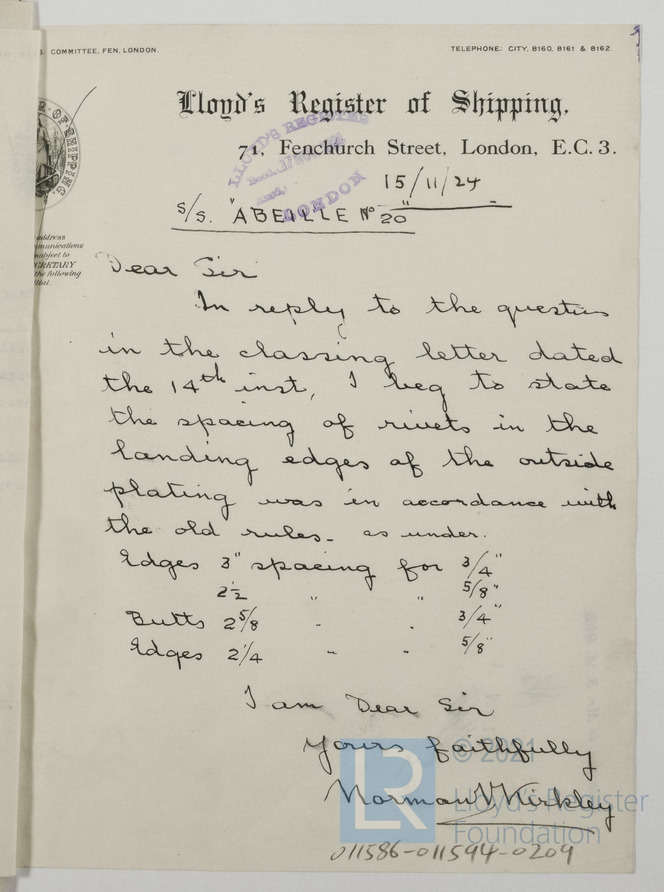 COMMITTEE, FEN, LONDON.
TELEPHONE: CITY, 8160, 8161 & 8162.
Lloyd's Register of Shipping,
71, Fenchurch Street, London, E.C. 3.
LLOYD'S REGISTER
LONDON
15/11/24
S/S. "ABEILLE No 20"
OF SHIPPING
address
mmunications
subject to
CRETARY
the following
Dear Sir
In reply to the question
in the classing letter dated
the 14th inst, I beg to state
the spacing of rivets in the
landing edges of the outside
plating was in accordance with
the old rules. as under.
Edges 3" spacing for 3/4"
2 1/2 " " 5/8"
Butts 2 5/8 " " 3/4"
Edges 2 1/4 " " 5/8"
I am Dear Sir
Yours faithfully
Norman V Kirkley
© 2021
LR
Lloyd's Register
Foundation
011586-011594-0209